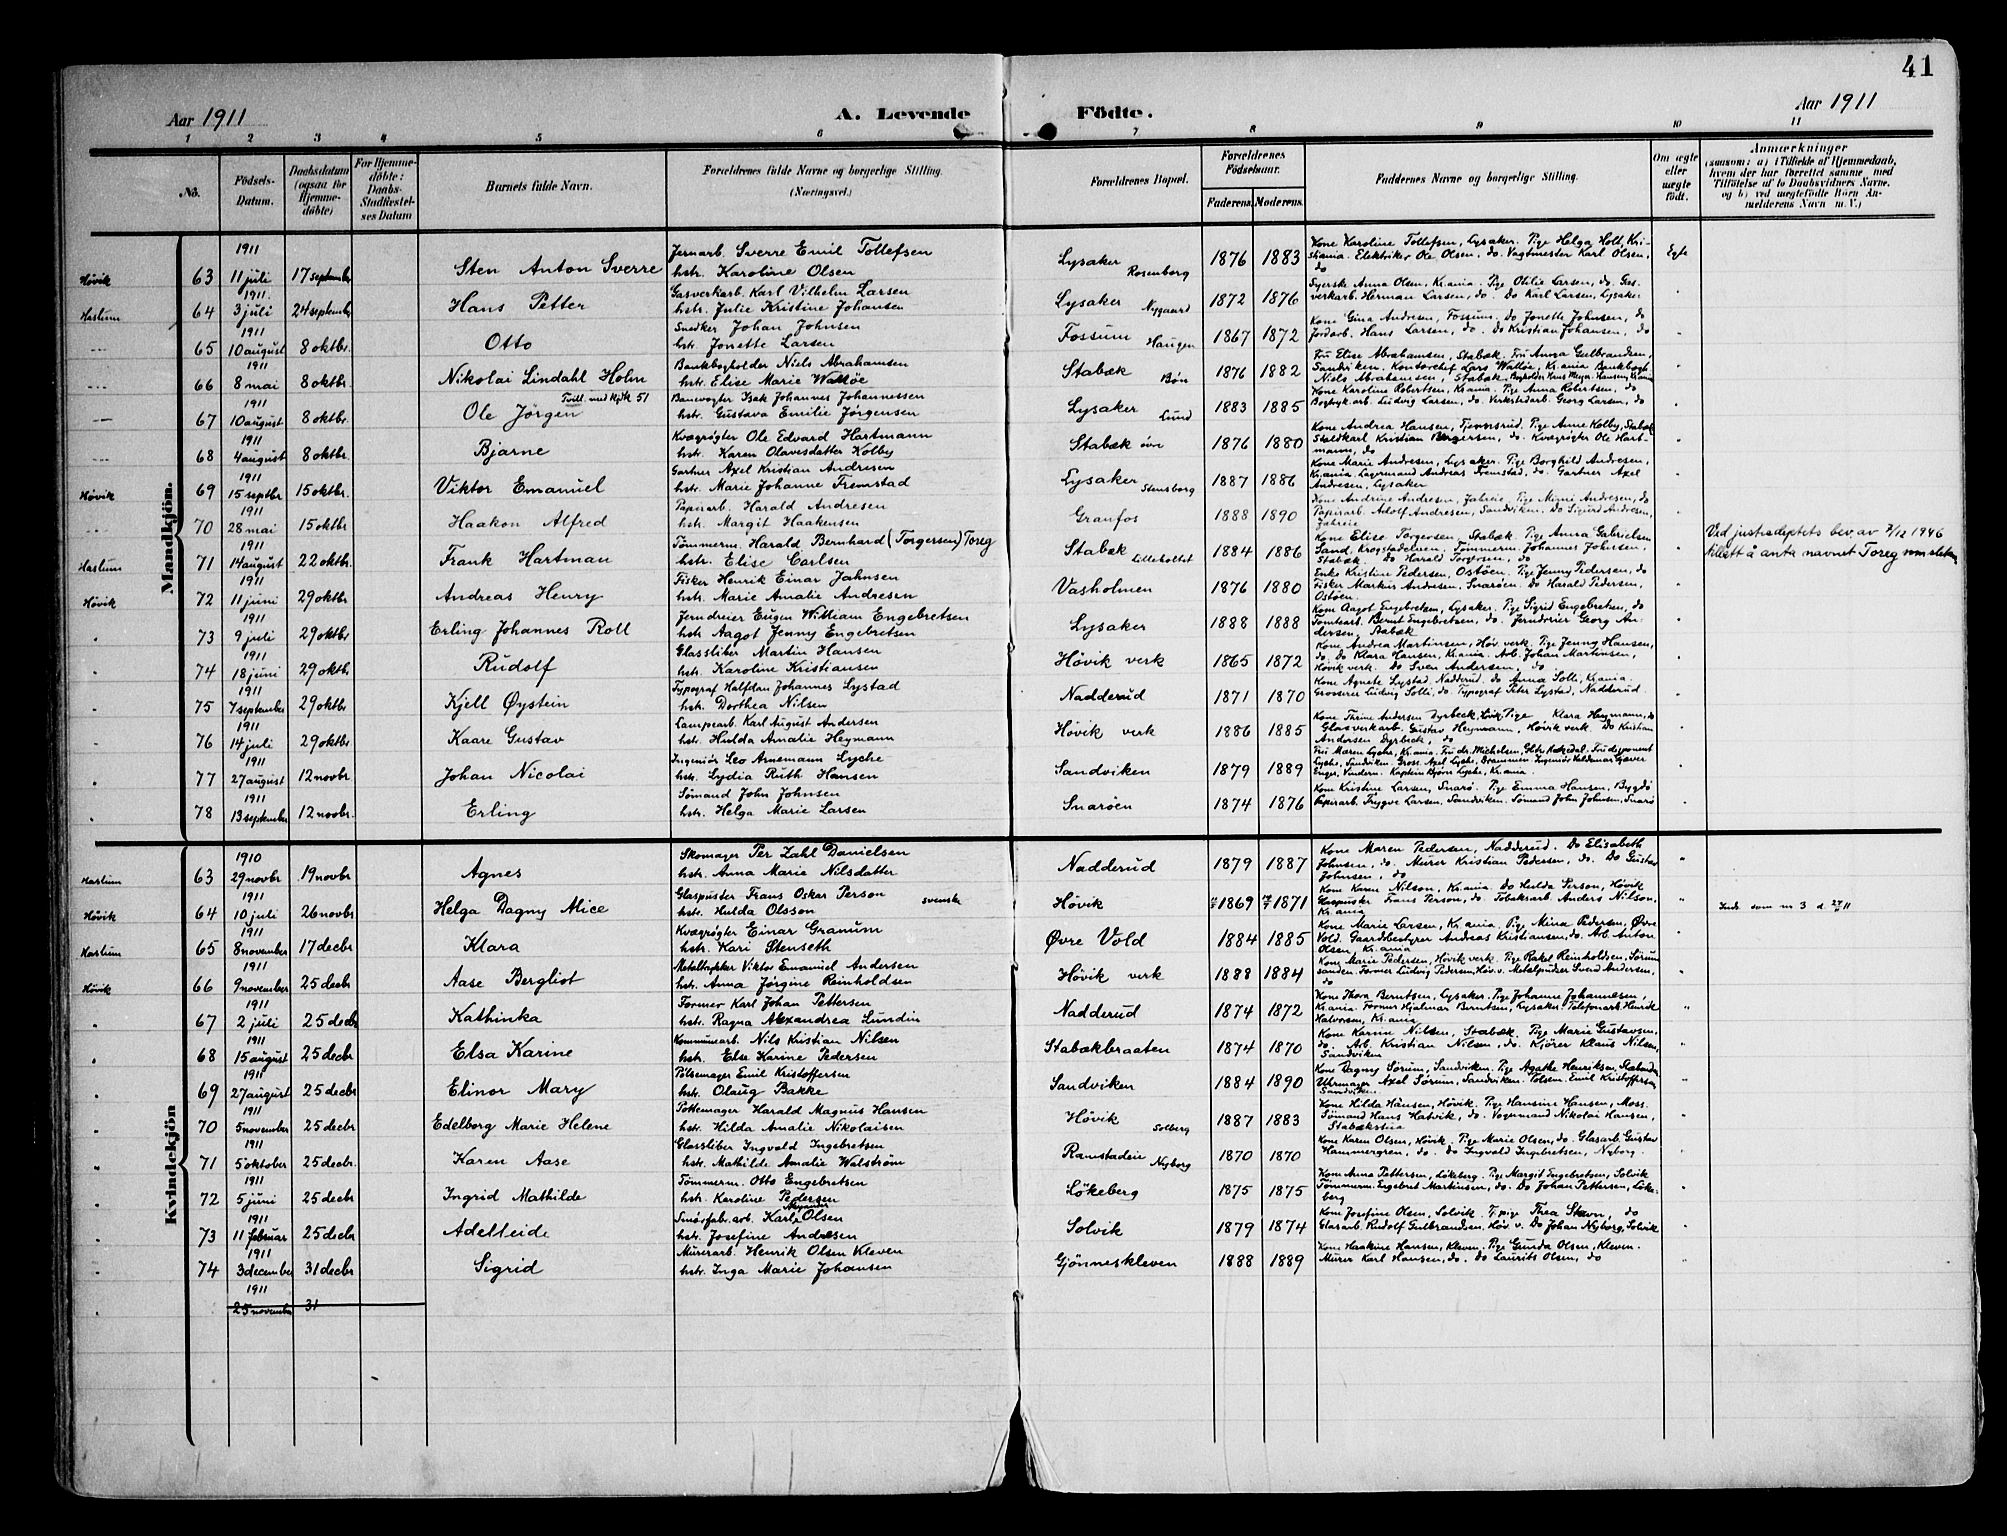 41
Aar 1911
A. Levende
Födte.
Aar 1911
1 2 3 4 5 6 7 8 9 10 11
No.
Födsels-
Datum.
Daabsdatum
(ogsaa for
Hjemme-
döbte)
For Hjemme-
döbte:
Daabs-
Stadfæstel-
ses Datum
Barnets fulde Navn.
Forældrenes fulde Navne og borgerlige Stilling.
(Næringsvei.)
Forældrenes Bopæl.
Forældrenes
Födselsaar.
Faderens. Moderens.
Faddernes Navne og borgerlig Stilling.
Om ægte
eller
uægte
født.
Anmærkninger
(saasom: a) i Tilfælde af Hjemmedaab,
hvem der har forrettet samme, med
Tilföielse af to Daabsvidners Navne.
og b) ved uægtefödte Börn An-
melderens Navn m. V.)
Mandkjön.
1911 Jernarb. Sverre Emil Tollefsen Kone Karoline Tollefsen, Lysaker. Pige Helga Holt, Kri-
Høvik 63 11 juli 17 septembr Sten Anton Sverre hstr. Karoline Olsen Lysaker Rosenborg 1876 1883 stiania. Elektriker Ole Olsen, do. Vagtmester Karl Olsen, do Egte
1911 Gasverkarb. Karl Vilhelm Larsen Syerske Anna Olsen, Kr.ania. Pige Otilie Larsen, do. Gas-
Haslum 64 3 juli 24 septembr Hans Petter hstr. Julie Kristine Johansen Lysaker Nygaard 1872 1876 verkarb. Herman Larsen, do. do Karl Larsen, Lysaker "
1911 Snedker Johan Johnsen Kone Gina Andresen, Fossum, do Jonette Johnsen, do
65 10 august 8 oktbr. Otto hstr. Jonette Larsen Fossum Haugen 1867 1872 Jordarb. Hans Larsen, do. do Kristian Johansen, do "
1911 Bankbogholder Niels Abrahamsen Fru Elise Abrahamsen, Stabæk. Fru Anna Gulbrandsen,
66 8 mai 8 oktbr. Nikolai Lindahl Holm hstr. Elise Marie Walløe Stabæk Bøn 1876 1882 Sandviken. Kontorchef Lars Walløe, Kr.ania. Bankbogh.
Niels Abrahamsen, Stabæk. "
1911 Tvill. med kjøk 51 Banevogter Isak Johannes Johannessen Kone Karoline Robertsen, Kr.ania. Pige Anna Robertsen, do
67 10 august 8 oktbr. Ole Jörgen hstr. Gustava Emilie Jørgensen Lysaker Lund 1883 1885 Bogtryk.arb. Ludvig Larsen, do. Verkstedarb. Georg Larsen, do "
1911 Kvægrøgter Ole Edvard Hartmann Kone Andrea Hansen, Pige Anne Kolby, Stabæk
68 4 august 8 oktbr. Bjarne hstr. Karen Olavesdatter Kolby Stabæk övr. 1876 1880 Staldkarl Kristian Børgersen, do. Kvægrøgter Ole Hart-
mann, do "
1911 Gartner Axel Kristian Andresen Kone Marie Andresen, Lysaker. Pige Borghild Andresen,
Høvik 69 15 septbr 15 oktbr. Viktor Emanuel hstr. Marie Johanne Fremstad Lysaker Stensborg 1887 1886 Kr.ania. Lagermand Andreas Fremstad, do. Gartner Axel
Andresen, Lysaker "
1911 Papirarb. Harald Andresen Kone Andrine Andresen, Jahreie, Pige Mimi Andresen, do
70 28 mai 15 oktbr Haakon Alfred hstr. Margit Haakensen Granfos 1888 1890 Papirarb. Adolf Andresen, Sandviken. Do Sigurd Andresen,
Jahreie "
1911 Tømmerm. Harald Bernhard (Torgersen) Toreg Kone Elise Torgersen, Stabæk. Pige Anna Gabrielsen Ved justisdeptets bev. av 7/12 1946
Haslum 71 14 august 22 oktbr. Frank Hartman hstr. Elise Carlsen Stabæk Lilleholtet 1884 1886 Sand, Krogstadelven. Tømmerm. Johannes Johnsen,
Stabæk. do Harald Torgersen, do " tillatt å anta navnet Toreg som slektsn
1911 Fisker Henrik Einar Jahnsen Enke Kristin Pedersen, Ostøen. Pige Jenny Pedersen, do
Høvik 72 11 juni 29 oktbr Andreas Henry hstr. Marie Amalie Andresen Vasholmen 1876 1880 Fisker Markus Andresen, Snarøen. Do Harald Pedersen,
Ostøen. "
1911 Jerndreier Eugen William Engebretsen Kone Aagot Engebretsen, Lysaker. Pige Sigrid Engebretsen, do
73 9 juli 29 oktbr. Erling Johannes Roll hstr. Aagot Jenny Engebretsen Lysaker 1888 1888 Tomtearb. Bernt Engebretsen, do. Jerndreier Georg An-
dersen, Stabæk "
1911 Glassliber Martin Hansen Kone Andrea Martinsen, Høv. verk. Pige Jenny Hansen,
74 18 juni 29 oktbr Rudolf hstr. Karoline Kristiansen Høvik verk 1865 1872 do. do Klara Hansen, Kr.ania. Arb. Johan Martinsen,
Høvik verk. do Sven Andersen, do "
1911 Typograf Halfdan Johannes Lystad Kone Agnete Lystad, Nadderud. do Anna Solli, Kr.ania.
75 7 september 29 oktbr Kjell Øystein hstr. Dorthea Nilsen Nadderud 1871 1870 Grosserer Ludvig Solli, do. Typograf Peter Lystad, Nadderud "
1911 Lampearb. Karl August Andersen Kone Thrine Andersen Dyrbeck, Høvik. Pige Klara Heymann, do
76 14 juli 29 oktbr Kaare Gustav hstr. Hulda Amalie Heymann Høvik verk 1886 1885 Glasverkarb. Gustav Heymann, Høvik verk. Do Kristian
Andersen Dyrbeck, do "
1911 Ingeniör Leo Arnemann Lyche Fru Maren Lyche, Kr.ania. Fru dr. Michelsen,
77 27 august 12 novbr. Johan Nicolai hstr. Lydia Ruth Hansen Sandviken 1879 1889 Lyche, Sandviken. Gross. Axel Lyche, Drammen. Ingeniör Valdemar
Enger, Vindern. Kaptein Bjørn Lyche, Kr.ania. "
1911 Sømand John Johnsen Kone Kristine Larsen, Snarø. Pige Emma Hansen, Bygdö
78 13 september 12 novbr. Erling hstr. Helga Marie Larsen Snarøen 1874 1876 Papirarb. Trygve Larsen, Sandviken. Sömand John Johnsen, Snarö "
Kvindekjön
1910 Skomager Per Zahl Danielsen Kone Maren Pedersen, Nadderud. Do Elisabeth
Haslum 63 29 novbr 19 novbr Agnes hstr. Anna Marie Nilsdatter Nadderud 1879 1887 Johnsen, do. Murer Kristian Pedersen, do. Do Gustav
Johnsen, do "
1911 Glaspuster Frans Oskar Person svenske Kone Karen Nilson, Kr.ania. Do Hulda Person, Høvik
Høvik 64 10 juli 26 novbr Helga Dagny Alice hstr. Hulda Olsson Høvik 1869 1871 Glaspuster Frans Person, do. Tobaksarb. Anders Nilson,
Kr.ania " Inds. som nr 3 d. 27/11 11
1911 Kvægrøgter Einar Granum Kone Marie Larsen, Kr.ania. Pige Mina Pedersen, Øvre
Haslum 65 8 november 17 decbr Klara hstr. Kari Stenseth Øvre Vold 1884 1885 Vold. Gaardsbestyrer Andreas Kristiansen, do. Arb. Anton
Olsen, Kr.ania "
1911 Metaltrykker Viktor Emanuel Andersen Kone Marie Pedersen, Høvik verk. Pige Rakel Reinholdsen, Sørum
Høvik 66 9 november 25 decbr Aase Bergliot hstr. Anna Jørgine Reinholdsen Høvik verk 1888 1884 sanden. Former Ludvig Pedersen, Høv. v. Metalpudser Svend Andersen,
do "
1911 Former Karl Johan Pettersen Kone Thora Berntsen, Lysaker. Pige Johanne Johannesen,
67 2 juli 25 decbr Kathinka hstr. Ragna Alexandrea Lundin Nadderud 1874 1872 Kr.ania. Former Hjalmar Berntsen, Lysaker. Telefonarb. Henrik
Halvorsen, Kr.ania "
1911 Kommunearb. Nils Kristian Nilsen Kone Karine Nilsen, Stabæk. Pige Marie Gustavsen,
68 15 august 25 decbr Elsa Karine hstr. Else Karine Pedersen Stabækbraaten 1874 1870 do. Arb. Kristian Nilsen, do. Kjører Klaus Nilsen,
Sandviken "
1911 Pölsemager Emil Kristoffersen Kone Dagny Sørum, Sandviken. Pige Agathe Henriksen,
69 27 august 25 decbr Elinor Mary hstr. Olaug Bakke Sandviken 1884 1890 Uhrmager Axel Sørum, Sandviken. Emil Kristoffersen,
Sandviken "
1911 Pottemager Harald Magnus Hansen Kone Hilda Hansen, Høvik. Pige Hansine Hansen, Moss.
70 5 november 25 decbr. Edelborg Marie Helene hstr. Hilda Amalie Nikolaisen Høvik Solberg 1887 1883 Sømand Hans Hatvik, do. Vognmand Nikolai Hansen,
Stabækstua "
1911 Glassliber Ingvald Ingebretsen Kone Karen Olsen, Høvik. Pige Marie Olsen, do. Glasarb. Gustav
71 5 oktober 25 decbr. Karen Aase hstr. Mathilde Amalie Walström Ramstadeie Nyborg 1870 1870 Hammergren, do. Do Ingvald Ingebretsen, Nyborg. "
1911 Tømmerm. Otto Engebretsen Kone Anna Pettersen, Løkeberg. Pige Margit Engebretsen, Solvik
72 5 juni 25 decbr Ingrid Mathilde hstr. Karoline Pedersen Løkeberg 1875 1875 Tömmerm. Engebret Martinsen, do. Do Johan Pettersen, Løke-
berg "
1911 Smørfab.arb. Karl Alexander Olsen Kone Josefine Olsen, Solvik. T. pige Thea Stavn, do
73 11 februar 25 decbr Adelheide hstr. Josefine Andresen Solvik 1879 1874 Glasarb. Rudolf Gulbrandsen, Høv. v. Do Johan Nyborg, Solvik "
1911 Murerarb. Henrik Olsen Kleven Kone Haakine Hansen, Kleven. Pige Gunda Olsen, Kleven.
74 3 december 31 decbr Sigrid hstr. Inga Marie Johansen Gjønneskleven 1888 1889 Murer Karl Hansen, do. do Laurits Olsen, do "
1911
25 november 31